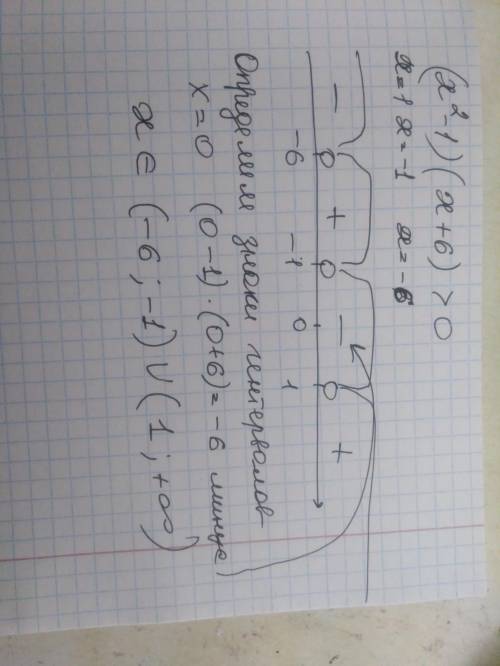 (x²-1)(x+6)>0
x=1 x=-1 x=-6
- + - +
-6 -1 0 1
Определим знаки интервалов
x=0 (0-1)·(0+6)=-6 минус
x∈(-6;-1)∪(1;+∞)